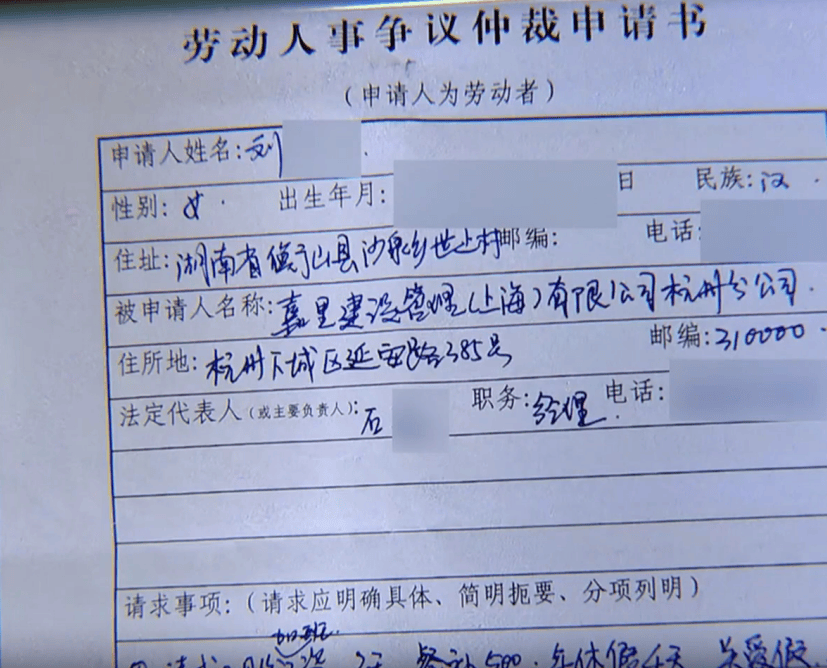 劳动人事争议仲裁申请书
（申请人为劳动者）
申请人姓名:刘
性别: 女 出生年月: 日 民族:汉
住址:湖南省衡山县沙泉乡世上村邮编: 电话:
被申请人名称:嘉里建设管理(上海)有限公司杭州分公司
住所地: 杭州下城区延安路385号 邮编:310000
法定代表人（或主要负责人）:石 职务:经理 电话:
请求事项:（请求应明确具体、简明扼要、分项列明）
加班
餐补500、年休假